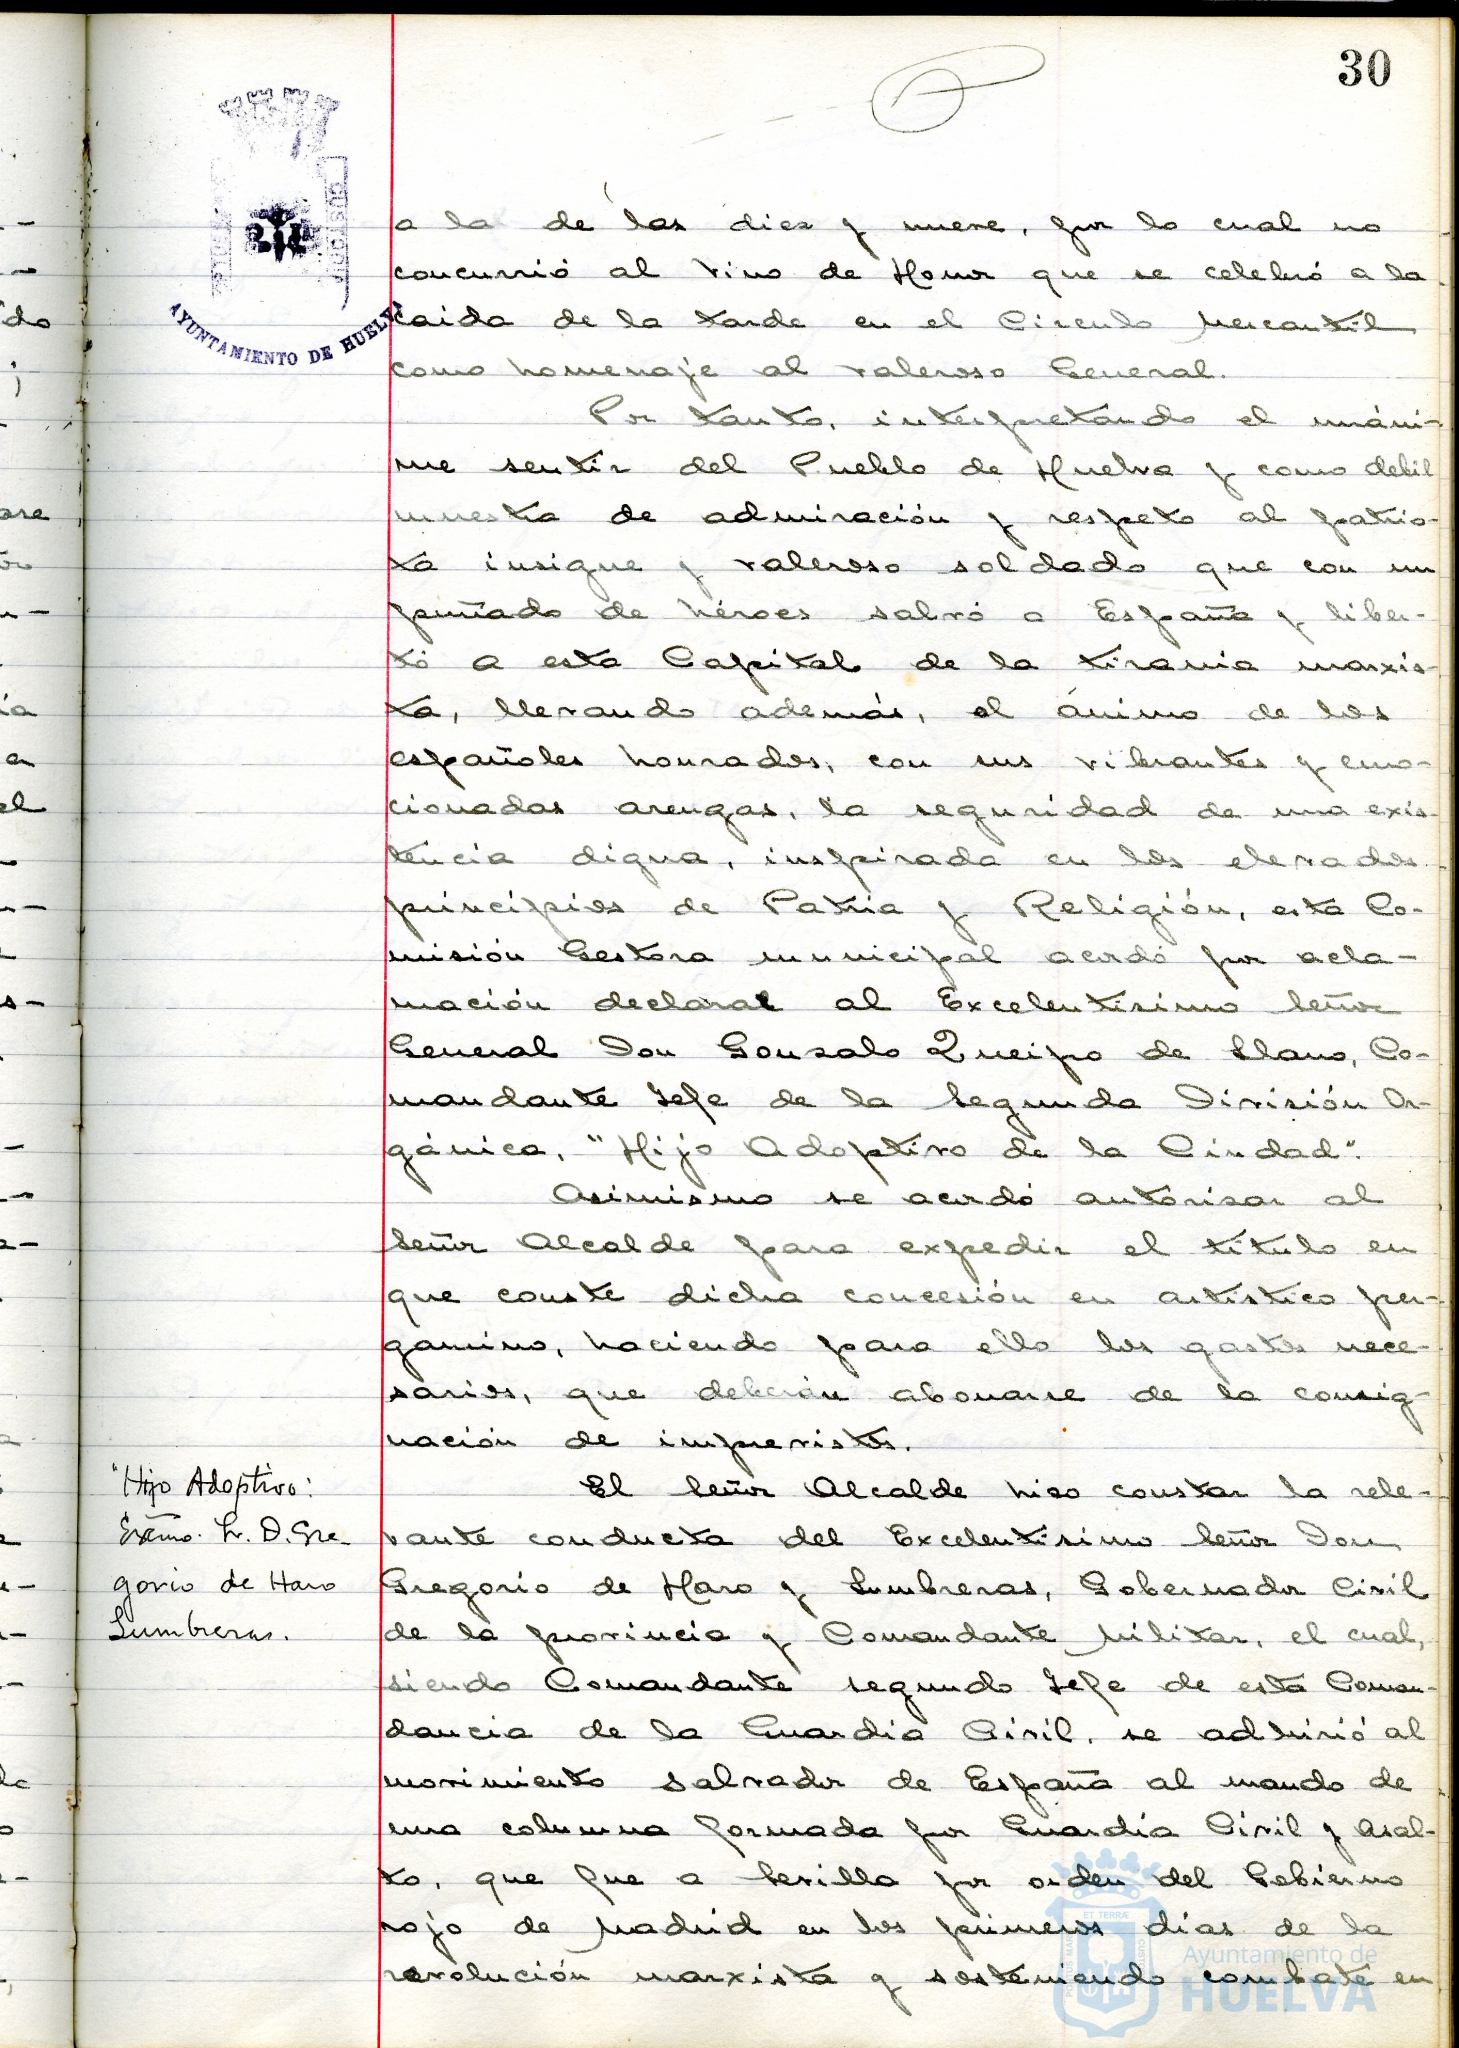 30
AYUNTAMIENTO DE HUELVA
a la de las diez y nueve, por lo cual no
concurrió al vino de Honor que se celebró a la
caida de la tarde en el Circulo Mercantil
como homenaje al valeroso General.
Por tanto, interpretando el unáni-
me sentir del Pueblo de Huelva y como debil
muestra de admiración y respeto al patrio-
ta insigne y valeroso soldado que con un
puñado de héroes salvó a España y liber-
tó a esta Capital de la tirania marxis-
ta, llevando además, al ánimo de los
españoles honrados, con sus vibrantes y emo-
cionadas arengas, la seguridad de una exis-
tencia digna, inspirada en los elevados
principios de Patria y Religión, esta Co-
misión Gestora municipal acordó por acla-
mación declarar al Excelentisimo Señor
General Don Gonzalo Queipo de Llano, Co-
mandante Jefe de la Segunda División Or-
gánica, "Hijo Adoptivo de la Ciudad".
Asimismo se acordó autorizar al
Señor Alcalde para expedir el título en
que conste dicha concesión en artístico per-
gamino, haciendo para ello los gastos nece-
sarios, que deberán abonarse de la consig-
nación de imprevistos.
"Hijo Adoptivo:
Exmo. Sr. D. Gre-
gorio de Haro
Lumbreras.
El Señor Alcalde hizo constar la rele-
vante conducta del Excelentisimo Señor Don
Gregorio de Haro y Lumbreras, Gobernador Civil
de la provincia y Comandante Militar, el cual,
siendo Comandante segundo Jefe de esta Coman-
dancia de la Guardia Civil, se adhirió al
movimiento salvador de España al mando de
una columna formada por Guardia Civil y Asal-
to, que fue a Sevilla por orden del Gobierno
rojo de Madrid en los primeros días de la
revolución marxista y sosteniendo combate en
Ayuntamiento de
HUELVA